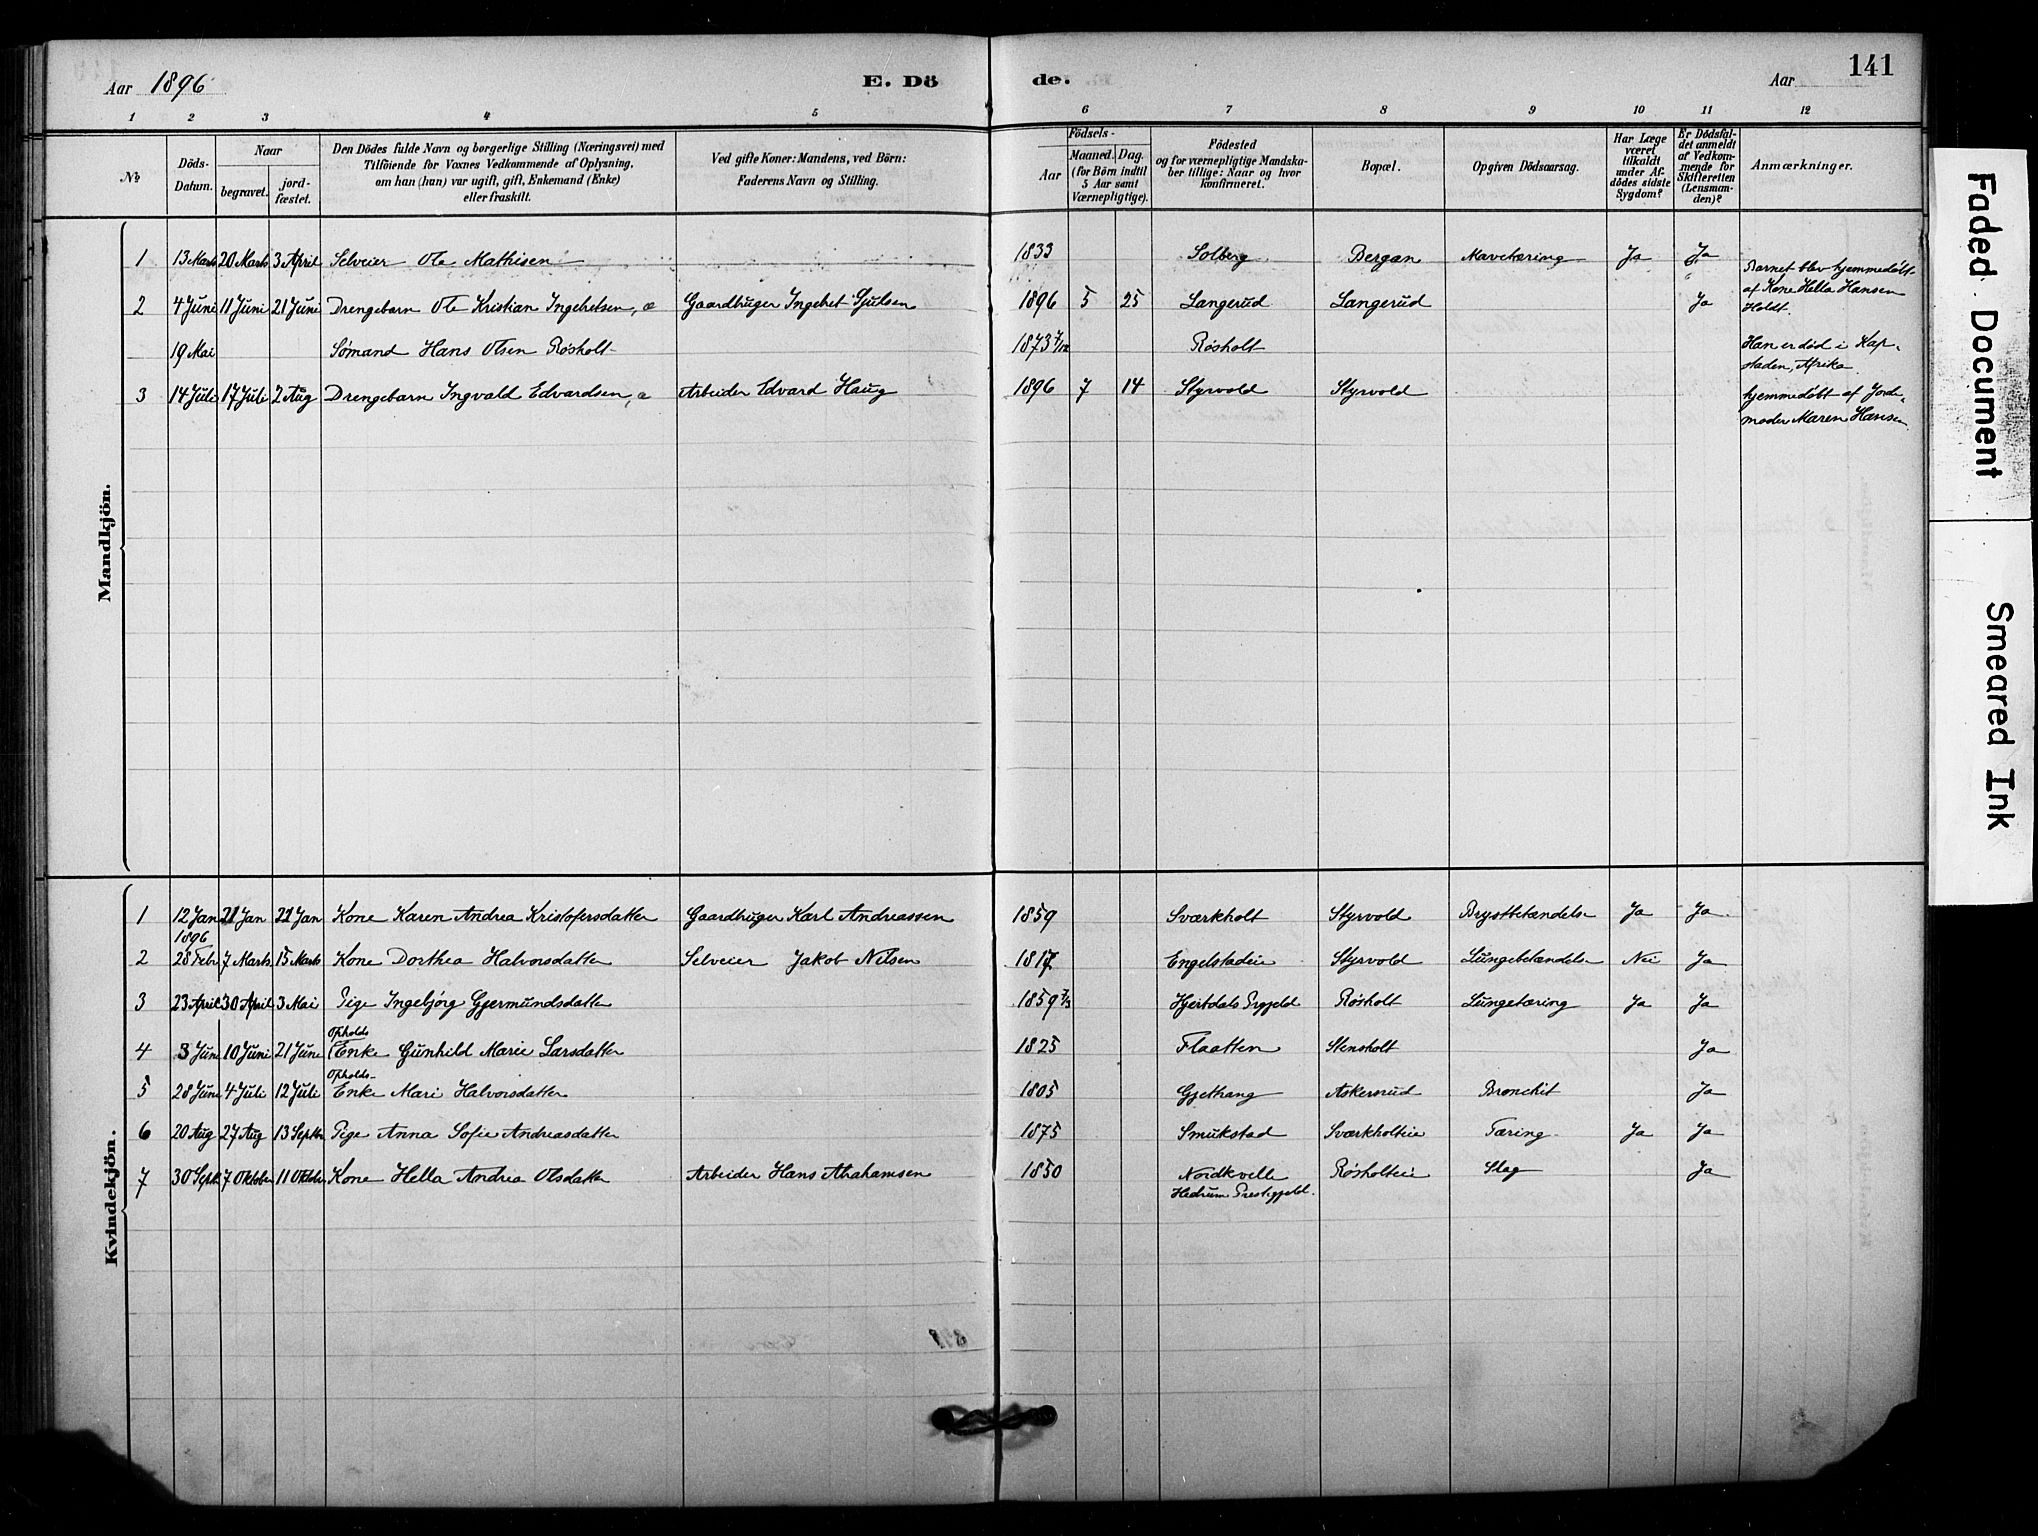 Aar 1896 E. Dö de. Aar 141
1 2 3 4 5 6 7 8 9 10 11 12
№ Döds-Datum. Naar begravet. jord-fæstet. Den Dödes fulde Navn og borgerlige Stilling (Næringsvei) med Tilföiende for Voxnes Vedkommende af Oplysning, om han (hun) var ugift, gift, Enkemand (Enke) eller fraskilt. Ved gifte Koner: Mandens, ved Börn: Faderens Navn og Stilling. Födsels- Aar Maaned. Dag. (for Börn indtil 5 Aar samt Værnepligtige). Födested og for værnepligtige Mandska-ber tillige: Naar og hvor konfirmeret. Bopæl. Opgiven Dödsaarsag. Har Læge været tilkaldt under Af-dödes sidste Sygdom? Er Dödsfal-det anmeldt af Vedkom-mende for Skifteretten (Lensman-den)? Anmærkninger.
Mandkjön.
1 13 Marts 20 Marts 3 April Selveier Ole Mathisen 1833 Solberg Bergan Mavetæring Ja Ja
2 4 Juni 11 Juni 21 Juni Drengebarn Ole Kristian Ingebretsen, æ Gaardbruger Ingebret Sjulsen 1896 5 25 Langerud Langerud Ja Barnet blev hjemmedøbt af Kone Hella Hansen Holdt.
19 Mai Sømand Hans Olsen Røsholt 1873 7/12 Røsholt Han er død i Kap-staden, Afrika.
3 14 Juli 17 Juli 2 Aug Drengebarn Ingvald Edvardsen, æ Arbeider Edvard Haug 1896 7 14 Styrvold Styrvold hjemmedøbt af Jorde-moder Maren Hansen
Kvindekjön.
1 12 Jan 1896 21 Jan 21 Jan Kone Karen Andrea Kristofersdatter Gaardbruger Karl Andreassen 1859 Sværkholt Styrvold Brystbetændelse Ja Ja
2 28 Febr 7 Marts 15 Marts Kone Dorthea Halvorsdatter Selveier Jakob Nilsen 1817 Engelstadeie Styrvold Lungebetændelse Nei Ja
3 23 April 30 April 3 Mai Pige Ingebjørg Gjermundsdatter 1859 7/3 Hjertdals Prgjeld Røsholt Lungetæring Ja Ja
4 3 Juni 10 Juni 21 Juni Opholds Enke Gunhild Marie Larsdatter 1825 Flaatten Stensholt Ja
5 28 Juni 4 Juli 12 Juli Opholds- Enke Mari Halvorsdatter 1805 Gjethang Askersrud Bronchit Ja
6 20 Aug 27 Aug 13 Septbr Pige Anna Sofie Andreasdatter 1875 Smukstad Sværkholteie Tæring Ja Ja
7 30 Sept. 7 Oktober 11 Oktober Kone Hella Andrea Olsdatter Arbeider Hans Abrahamsen 1850 Nordkvelle Hedrum Prestegjeld. Røsholteie Slag Ja
Faded Document
Smeared Ink